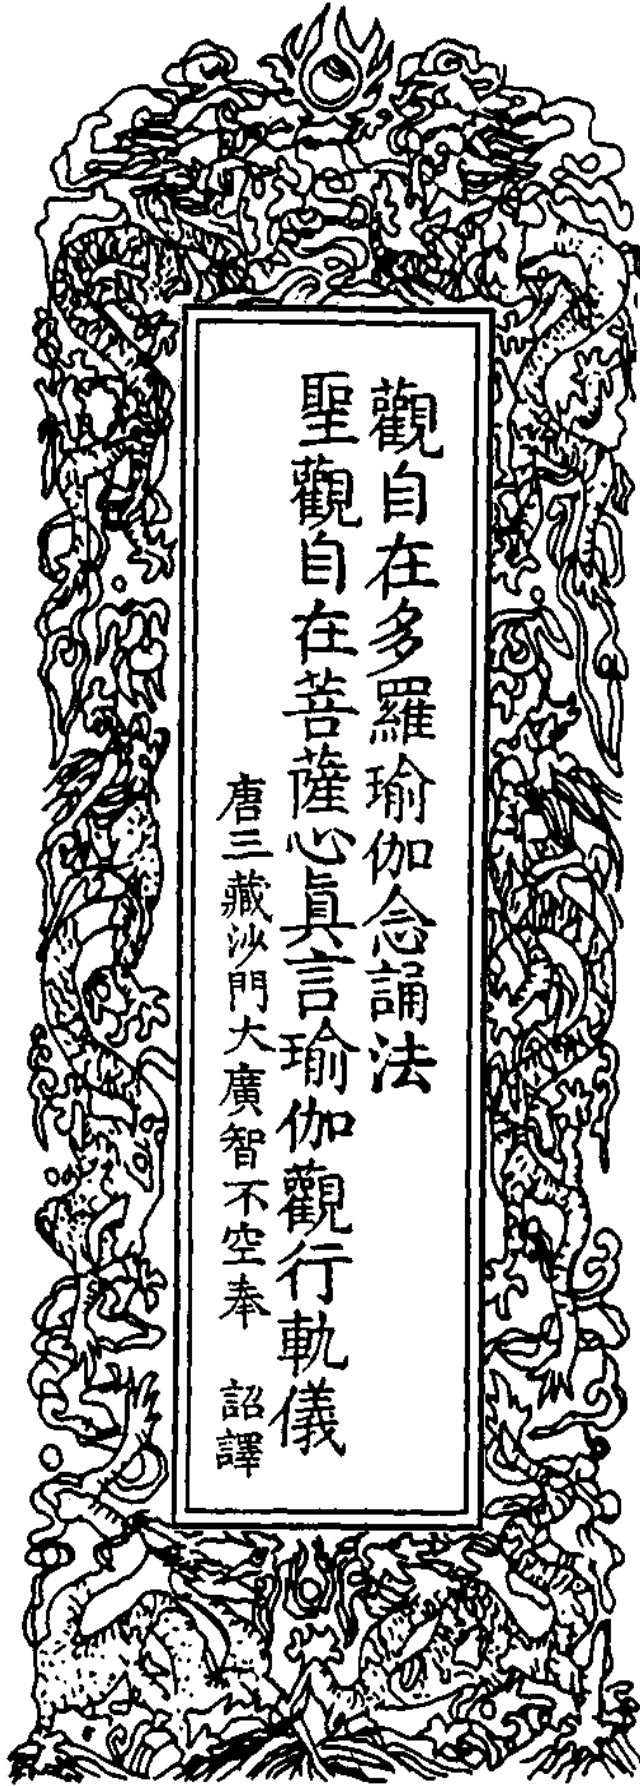 觀自在多羅瑜伽念誦法
聖觀自在菩薩心眞言瑜伽觀行軌儀
唐三藏沙門大廣智不空奉　詔譯